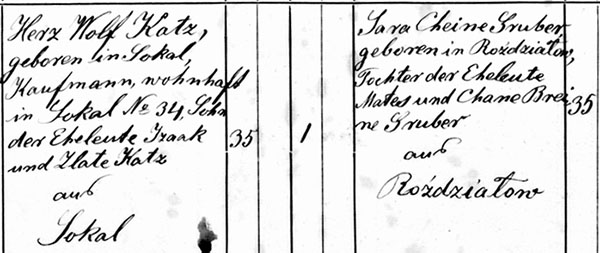 Herz Wolf Katz,
geboren in Sokal,
Kaufmann, wohnhaft
in Sokal No 34, Sohn
der Eheleute Izaak
und Zlate Katz
aus
Sokal
35
1
Sara Cheine Gruber
geboren in Roździałow,
Tochter der Eheleute
Mates und Chane Brei
ne Gruber
aus
Roździałow
35